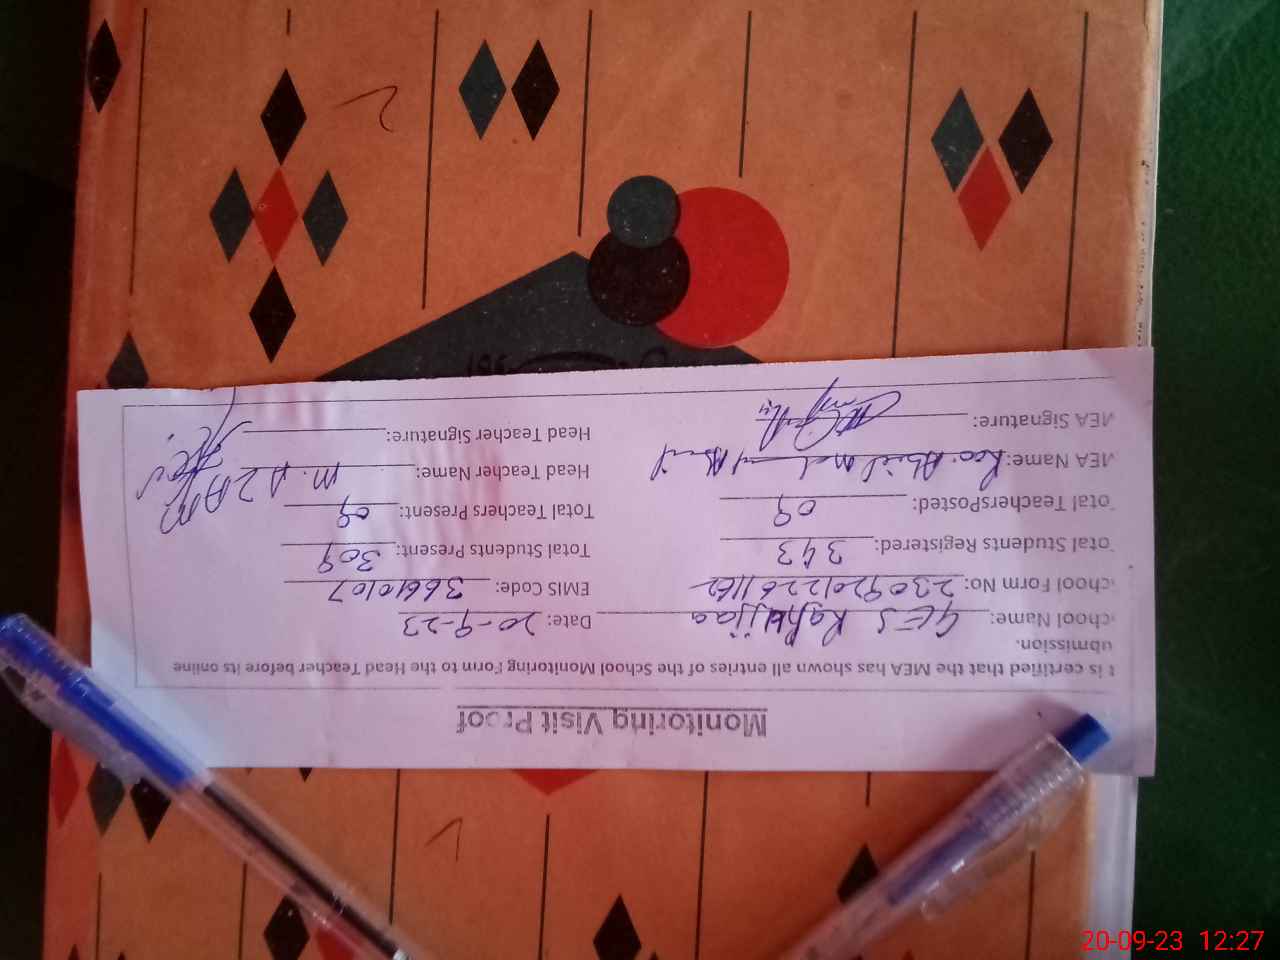 Monitoring Visit Proof
t is certified that the MEA has shown all entries of the School Monitoring Form to the Head Teacher before its online
ubmission.
chool Name: GES Date: 20-9-23
chool Form No: 23092012261162 EMIS Code: 36610107
otal Students Registered: 343 Total Students Present: 309
otal TeachersPosted: 09 Total Teachers Present: 09
MEA Name: Rao Head Teacher Name: M. AZAM
MEA Signature: Head Teacher Signature:
20-09-23 12:27